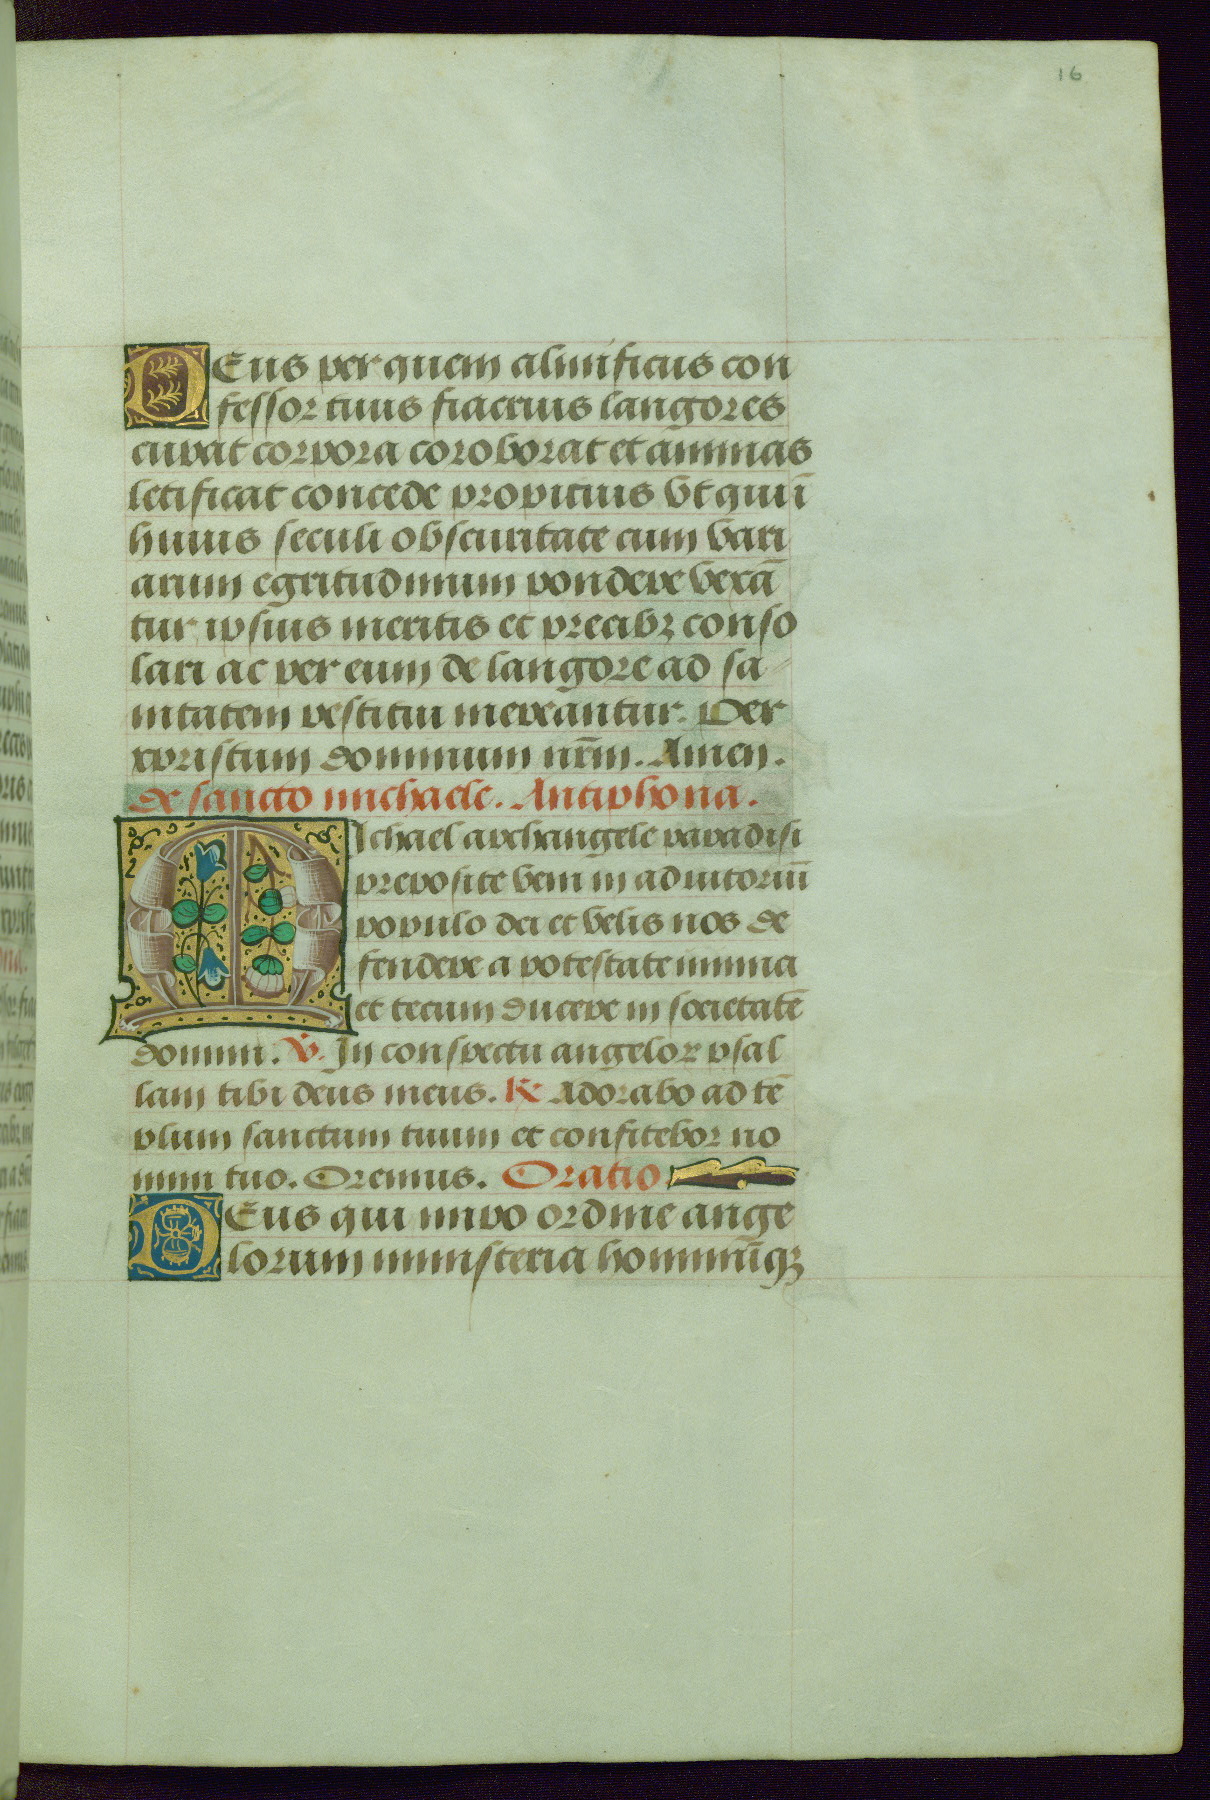 16
DEus per quem almificus con
fessor tuus fiacrius langores
curat corpora coroborat et animas
letificat concede propitius vt qui ī
huius seculi obscuritate cum vari
arum egritudinum pondere vexā
tur ipsius meritis et precibꝫ conso
lari ac per eum de langore ad sa
nitatem restitui mereantur. Per
xpristum dominum nr̄m. Amen.
de sancto michaele. Antiphona.
MIchael archangele paradisi
preposite veni in adiutoriū
populo dei et velis nos de
fendere a potestate inimica
et tecum ducere in societatē
domini. ℣. In conspectu angelor psal
lam tibi deus meus. ℟ Adorabo ad tē
plum sanctum tuum et confitebor no
mini tuo. Oremus. Oratio
DEus qui miro ordine ange
lorum ministeria hominūqꝫ